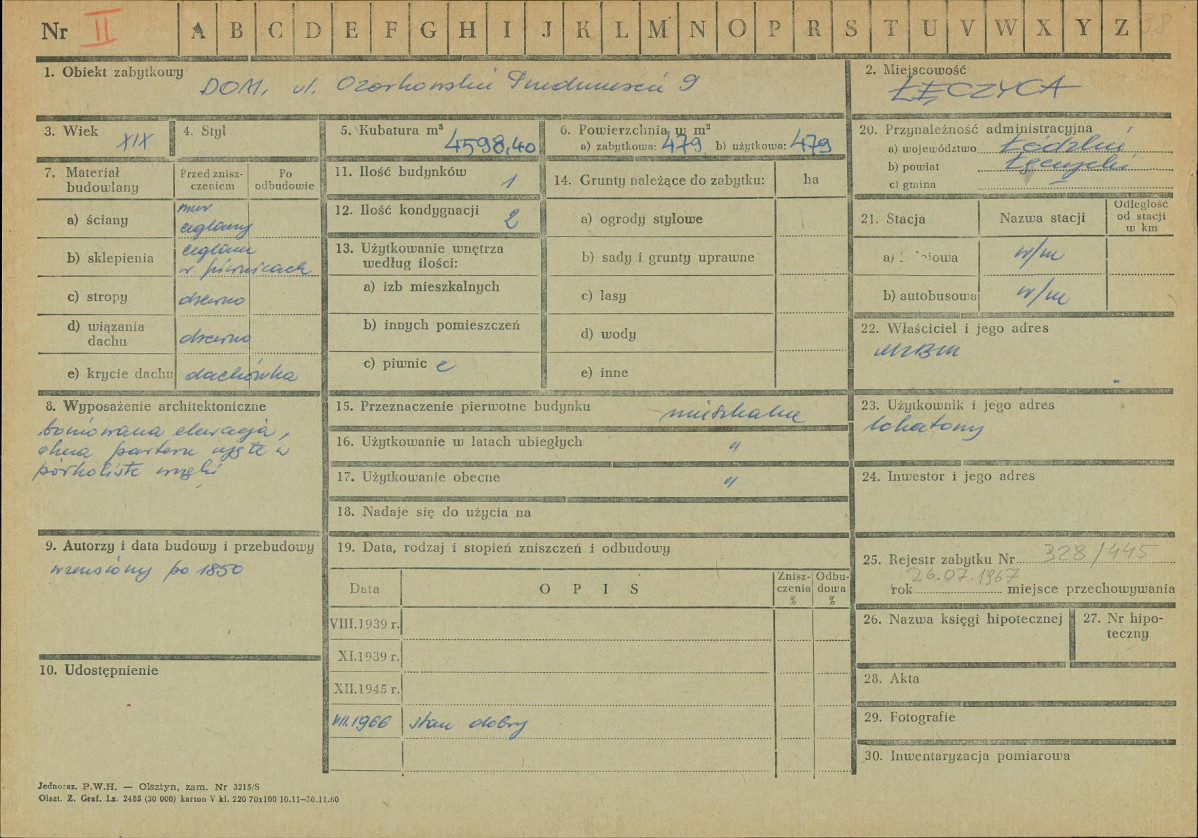 Nr II A B C D E F G H I J K L M N O P R S T U V W X Y Z 38
1. Obiekt zabytkowy DOM, ul. Ozorkowskie Przedmieście 9
2. Miejscowość
ŁĘCZYCA
3. Wiek XIX
4. Styl
5. Kubatura m³ 4598,40
6. Powierzchnia w m²
a) zabytkowa: 479 b) użytkowa: 479
7. Materiał budowlany
Przed zniszczeniem
Po odbudowie
a) ściany mur ceglany
b) sklepienia ceglane w piwnicach
c) stropy drewno
d) wiązania dachu drewno
e) krycie dachu dachówka
8. Wyposażenie architektoniczne
boniowana elewacja,
okna parteru ujęte w
półkoliste wnęki
9. Autorzy i data budowy i przebudowy
wzniesiony po 1850
10. Udostępnienie
11. Ilość budynków 1
12. Ilość kondygnacji 2
13. Użytkowanie wnętrza
według ilości:
a) izb mieszkalnych
b) innych pomieszczeń
c) piwnic
14. Grunty należące do zabytku: ha
a) ogrody stylowe
b) sady i grunty uprawne
c) lasy
d) wody
e) inne
15. Przeznaczenie pierwotne budynku mieszkalne
16. Użytkowanie w latach ubiegłych "
17. Użytkowanie obecne "
18. Nadaje się do użycia na
19. Data, rodzaj i stopień zniszczeń i odbudowy
Data O P I S Zniszczenia % Odbudowa %
VIII.1939 r.
XI.1939 r.
XII.1945 r.
VII.1966 stan dobry
20. Przynależność administracyjna
a) województwo Łódzkie
b) powiat Łęczycki
c) gmina
21. Stacja Nazwa stacji Odległość od stacji w km
a) kolejowa w/m
b) autobusowa w/m
22. Właściciel i jego adres
MZBM
23. Użytkownik i jego adres
lokatorzy
24. Inwestor i jego adres
25. Rejestr zabytku Nr 328/445
rok 26.07.1967 miejsce przechowywania
26. Nazwa księgi hipotecznej
27. Nr hipoteczny
28. Akta
29. Fotografie
30. Inwentaryzacja pomiarowa
Jednoraz. P.W.H. — Olsztyn, zam. Nr 3215/S
Olszt. Z. Graf. Lz. 2485 (30 000) karton V kl. 220 70x100 10.11—30.11.60